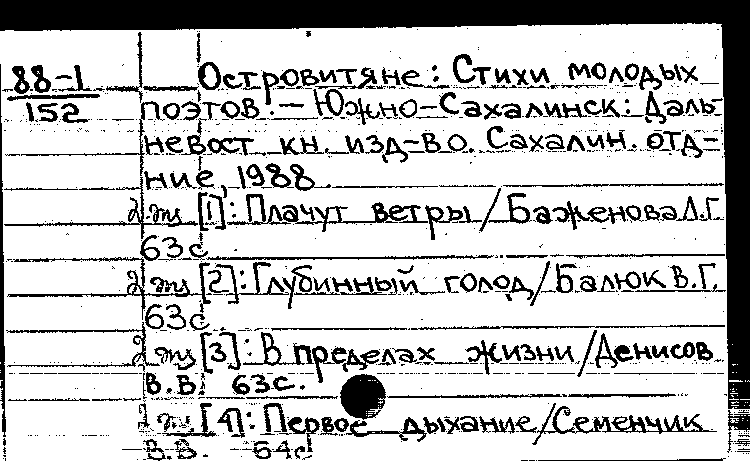 88-1
152
Островитяне: Стихи молодых
поэтов. — Южно-Сахалинск: Даль-
невост. кн. изд-во. Сахалин. отд-
ние, 1988.
2 экз [1]: Плачут ветры / Баженова Л.Г.
63с.
2 экз [2]: Глубинный голод / Балюк В.Г.
63с.
2 экз [3]: В пределах жизни / Денисов
В.В. 63с.
2 экз [4]: Первое дыхание / Семенчик
В.В. 64с